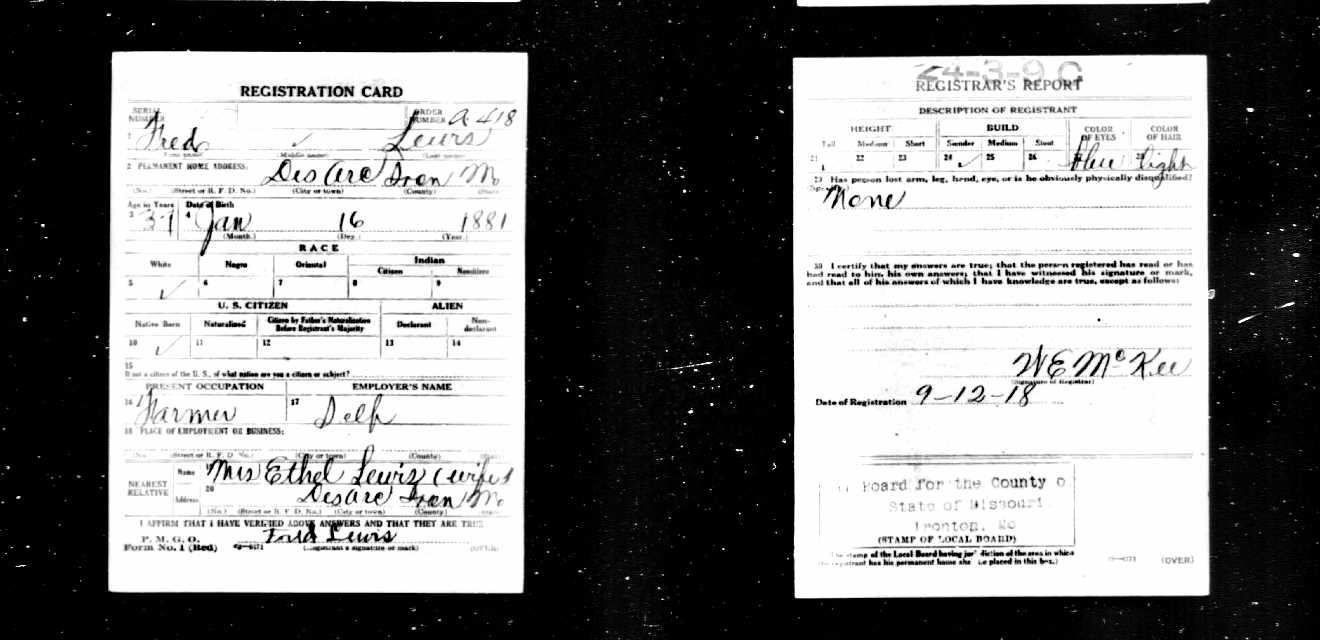 REGISTRATION CARD
SERIAL NUMBER
ORDER NUMBER A 418
1 Fred Lewis
(First name) (Middle name) (Last name)
2 PERMANENT HOME ADDRESS:
Des Arc Iron Mo
(No.) (Street or R. F. D. No.) (City or town) (County) (State)
Age in Years Date of Birth
3 37 4 Jan 16 1881
(Month.) (Day.) (Year.)
RACE
White Negro Oriental Indian
Citizen Noncitizen
5 ✓ 6 7 8 9
U. S. CITIZEN ALIEN
Native Born Naturalized Citizen by Father's Naturalization Before Registrant's Majority Declarant Non-declarant
10 ✓ 11 12 13 14
15
If not a citizen of the U. S., of what nation are you a citizen or subject?
PRESENT OCCUPATION EMPLOYER'S NAME
16 Farmer 17 Self
18 PLACE OF EMPLOYMENT OR BUSINESS:
(No.) (Street or R. F. D. No.) (City or town) (County) (State)
NEAREST RELATIVE
Name 19 Mrs Ethel Lewis (wife)
Address 20 Des Arc Iron Mo
(No.) (Street or R. F. D. No.) (City or town) (County) (State)
I AFFIRM THAT I HAVE VERIFIED ABOVE ANSWERS AND THAT THEY ARE TRUE
P. M. G. O.
Form No. 1 (Red)
Fred Lewis
(Registrant's signature or mark) (OVER)
24-3-9 C
REGISTRAR'S REPORT
DESCRIPTION OF REGISTRANT
HEIGHT BUILD COLOR OF EYES COLOR OF HAIR
Tall Medium Short Slender Medium Stout
21 22 23 24 ✓ 25 26 Blue 28 light
29 Has person lost arm, leg, hand, eye, or is he obviously physically disqualified?
(Specify.)
None
30 I certify that my answers are true; that the person registered has read or has
had read to him, his own answers; that I have witnessed his signature or mark,
and that all of his answers of which I have knowledge are true, except as follows:
W E McKee
(Signature of Registrar)
Date of Registration 9-12-18
Board for the County o
State of Missouri.
Ironton, Mo
(STAMP OF LOCAL BOARD)
(The stamp of the Local Board having jurisdiction of the area in which
the registrant has his permanent home shall be placed in this box.)
(OVER)